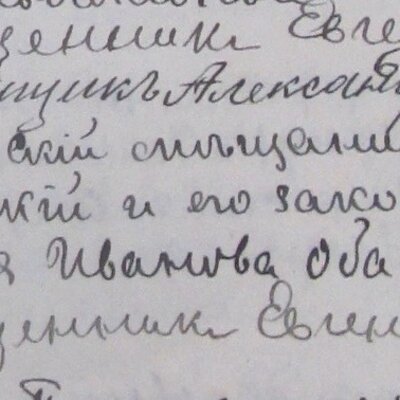 щенникъ Евге
щикъ Александ
скій мѣщани
кій и его зако
я Иванова оба
щенникъ Евген